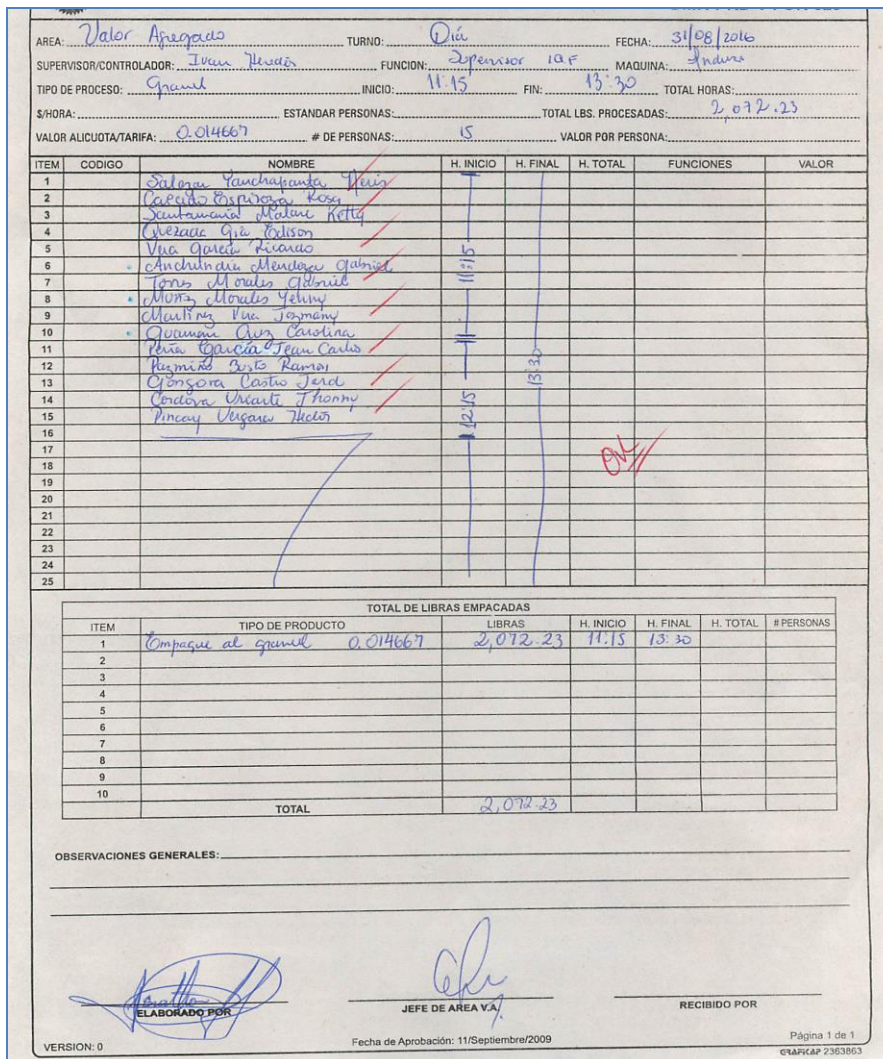 AREA: Valor Agregado TURNO: Día FECHA: 31/08/2016
SUPERVISOR/CONTROLADOR: Ivan FUNCION: Supervisor IQF MAQUINA:
TIPO DE PROCESO: Granel INICIO: 11:15 FIN: 13:30 TOTAL HORAS:
$/HORA: ESTANDAR PERSONAS: TOTAL LBS. PROCESADAS: 2,072.23
VALOR ALICUOTA/TARIFA: 0.014667 # DE PERSONAS: 15 VALOR POR PERSONA:
ITEM CODIGO NOMBRE H. INICIO H. FINAL H. TOTAL FUNCIONES VALOR
1 Salazar Yanchapanta
2 Caicedo Espinoza Rosa
3 Santamaria Malave Ketty
4 Quezada Edison
5 Vera Garcia Ricardo
6 Anchundia Mendoza Gabriel 11:15
7 Torres Morales Gabriel
8 Muñoz Morales Yenny
9 Martinez Vera Jazmany
10 Guaman Cruz Carolina
11 Peña García Jean Carlos
12 Pazmiño Ramon 13:30
13 Gongora Castro
14 Cordova Uriarte Jhonny 12:15
15 Pincay Vergara Hector
16
17 OK
18
19
20
21
22
23
24
25
TOTAL DE LIBRAS EMPACADAS
ITEM TIPO DE PRODUCTO LIBRAS H. INICIO H. FINAL H. TOTAL # PERSONAS
1 Empaque al granel 0.014667 2,072.23 11:15 13:30
2
3
4
5
6
7
8
9
10
TOTAL 2,072.23
OBSERVACIONES GENERALES:
ELABORADO POR JEFE DE AREA V.A. RECIBIDO POR
VERSION: 0 Fecha de Aprobación: 11/Septiembre/2009 Página 1 de 1
GRAFICAP 2363863